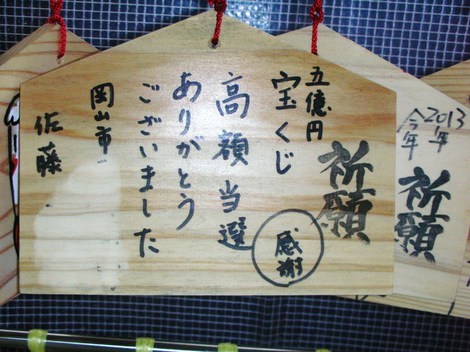 祈願
五億円
宝くじ
高額当選
ありがとう
ございました
感謝
岡山市
佐藤
2013年
今年
祈願